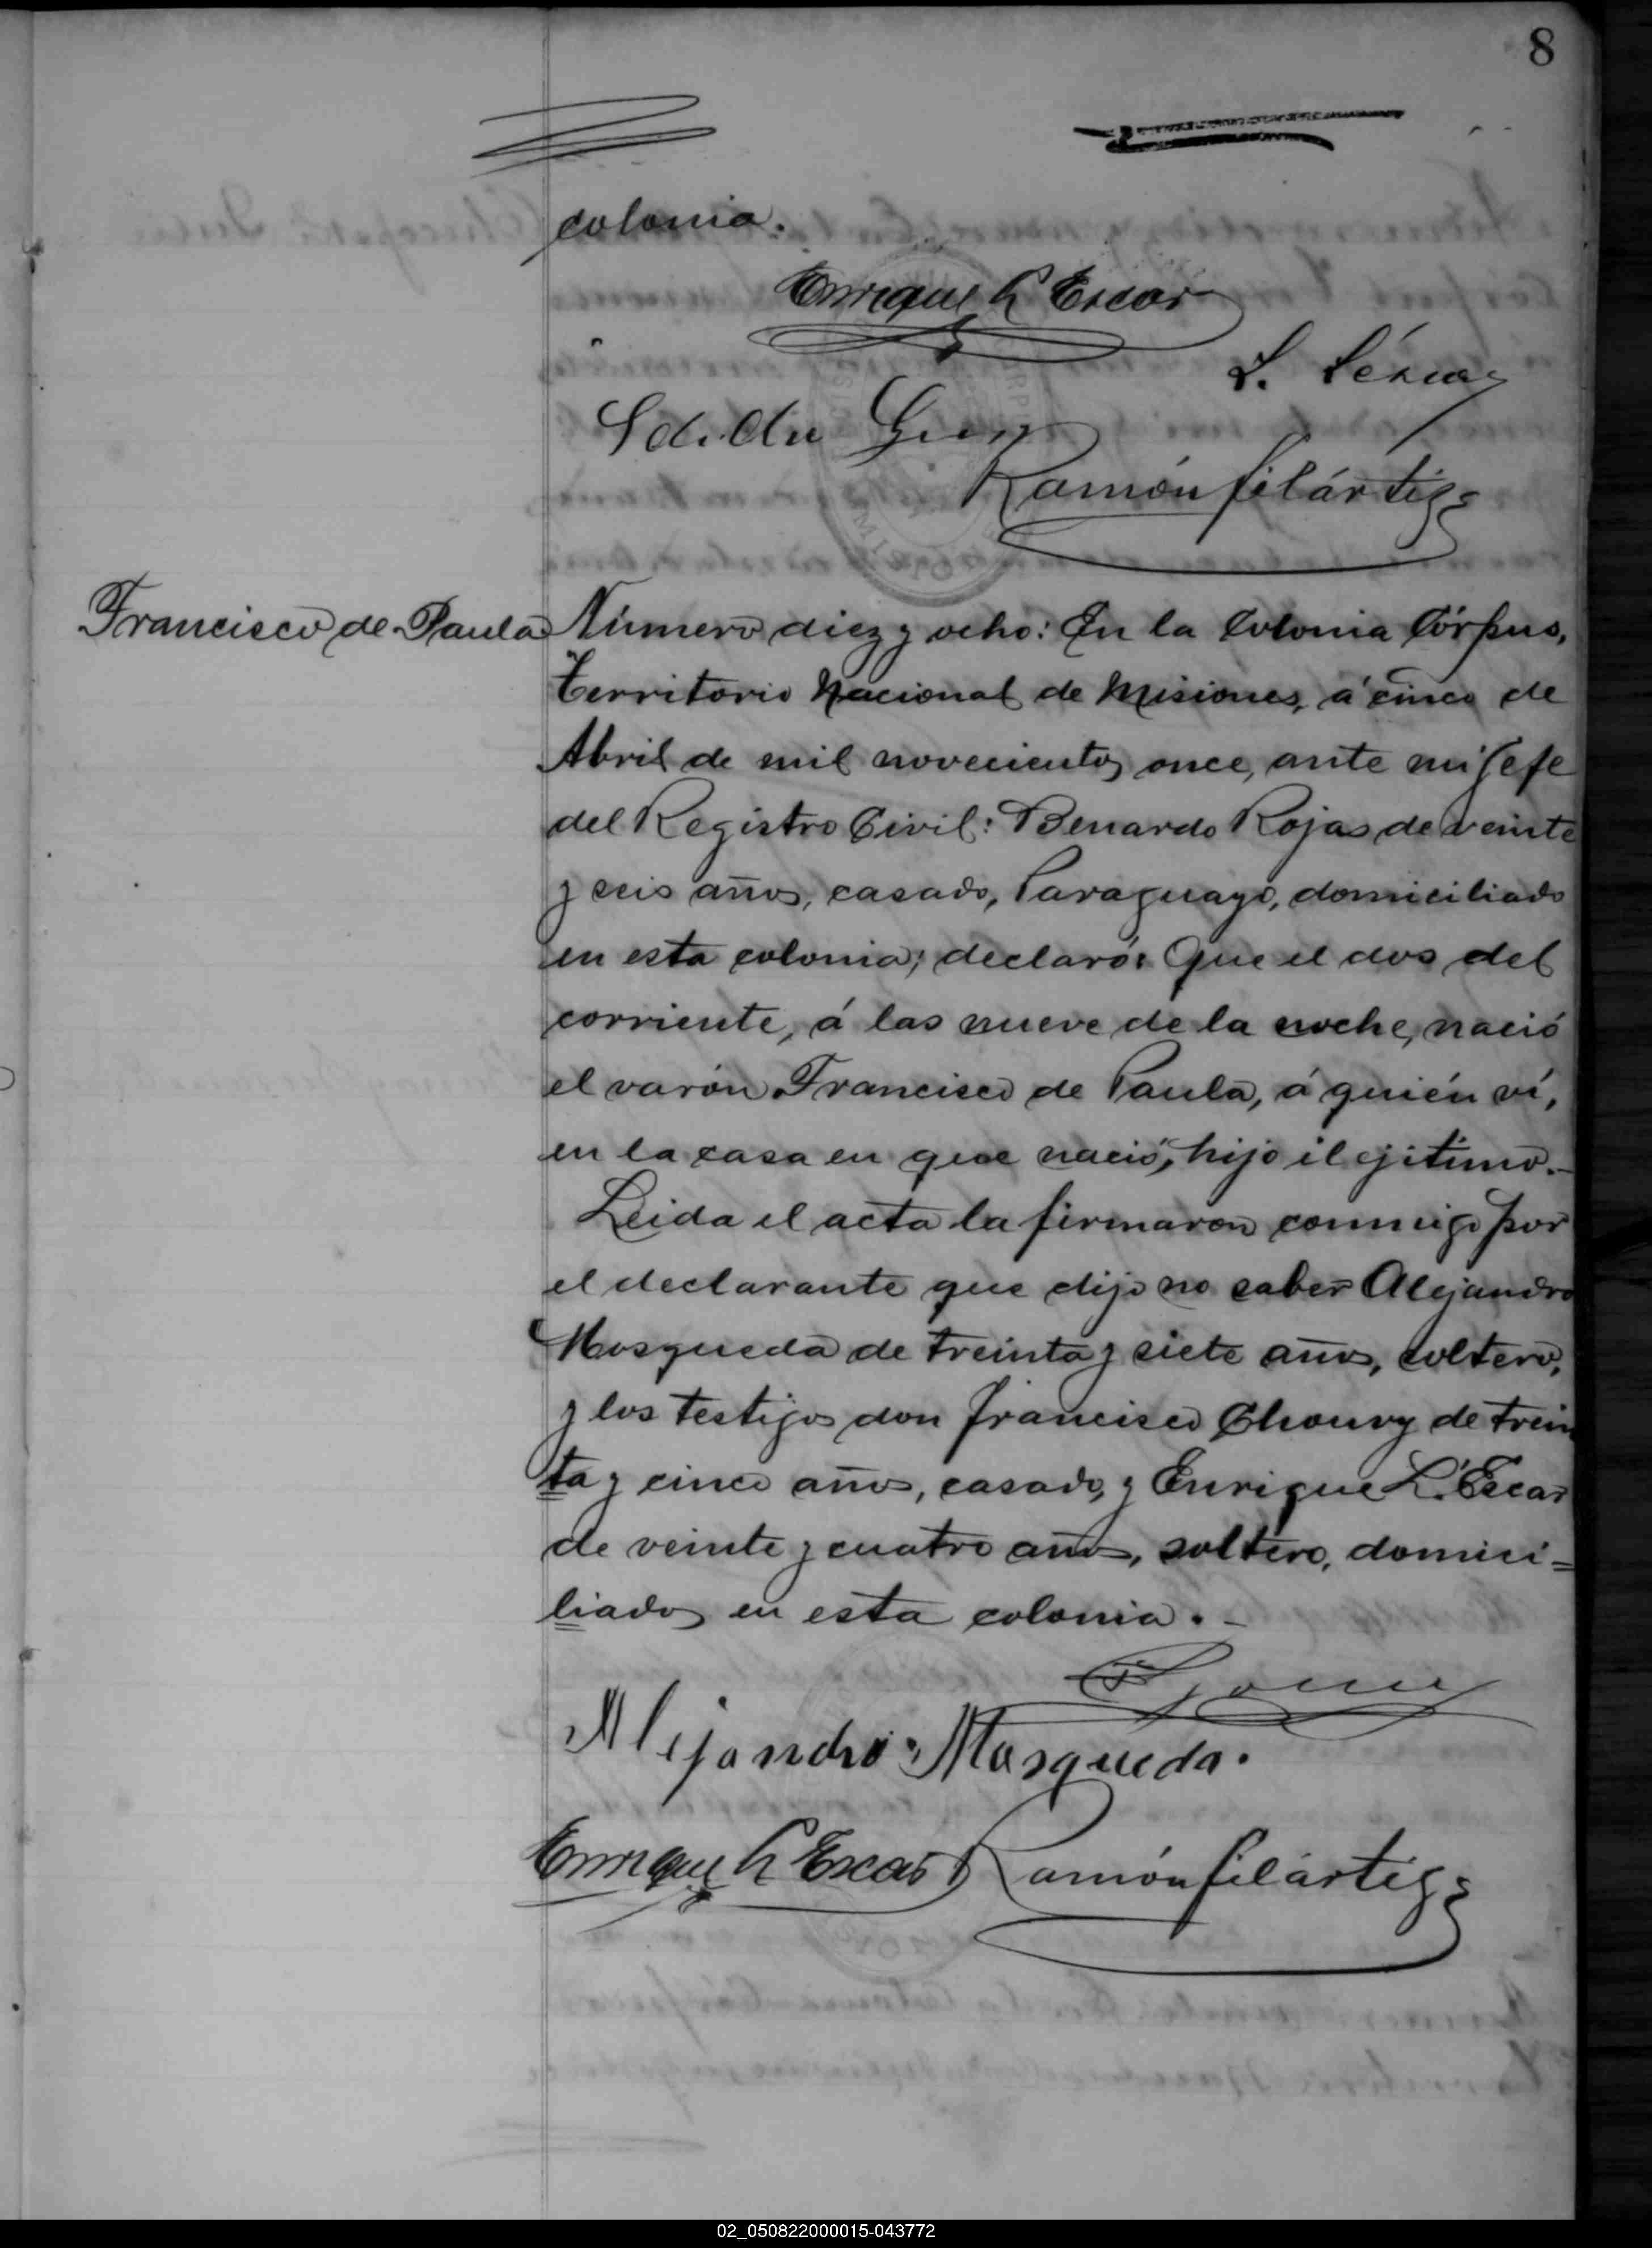 8
colonia.
Enrique L Escar
Ramón Filártiga
Francisco de Paula
Número diez y ocho: En la Colonia Córpus,
Territorio Nacional de Misiones, á cinco de
Abril de mil novecientos once, ante mi Jefe
del Registro Civil: Benardo Rojas de veinte
y seis años, casado, Paraguayo, domiciliado
en esta colonia; declaró: Que el dos del
corriente, á las nueve de la noche, nació
el varón Francisco de Paula, á quién ví,
en la casa en que nació, hijo ilejítimo.-
Leida el acta la firmaron conmigo por
el declarante que dijo no saber Alejandro
Mosqueda de treinta y siete años, soltero,
y los testigos don Francisco Chouvy de trein
ta y cinco años, casado, y Enrique L. Escar
de veinte y cuatro años, soltero, domici=
liados en esta colonia.-
Alejandro Mosqueda.
Enrique L Escar Ramón Filártiga
02_050822000015-043772